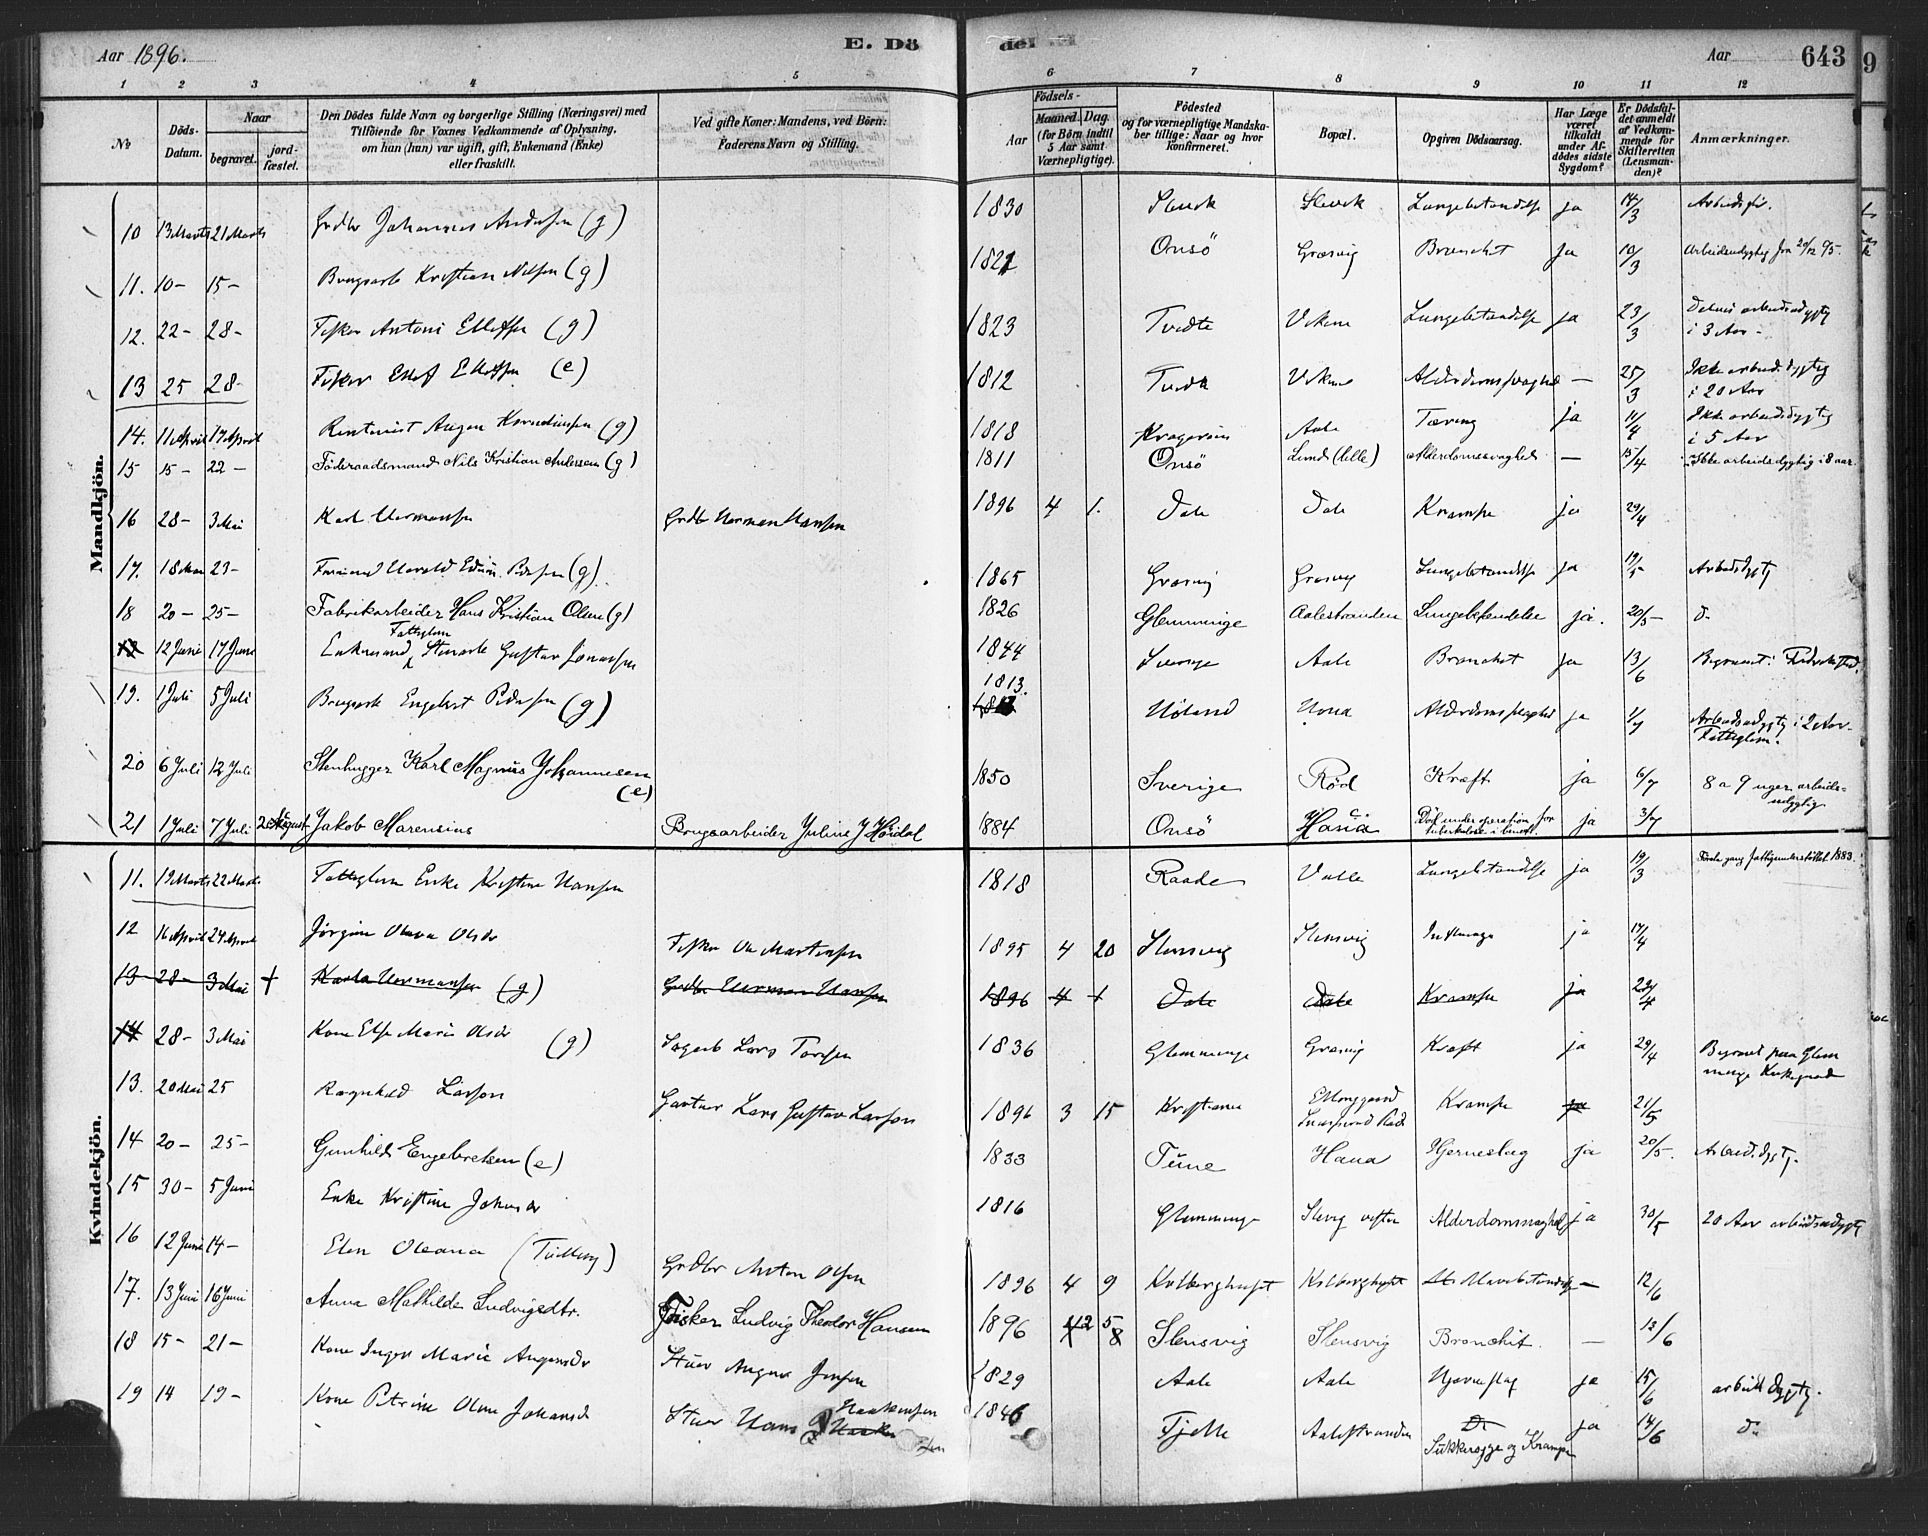 Aar 1896. E. Dö
de M Aar 643 9
1 2 3 4 5 6 7 8 9 10 11 12
№ Döds-Datum. Naar begravet. jord-fæstet. Den Dödes fulde Navn og borgerlige Stilling (Næringsvei) med Tilföiende for Voxnes Vedkommende af Oplysning, om han (hun) var ugift, gift, Enkemand (Enke) eller fraskilt. Ved gifte Koner: Mandens, ved Börn: Faderens Navn og Stilling. Födsels- Aar Maaned. Dag. (for Børn indtil 5 Aar samt Værnepligtige). Födested og for værnepligtige Mandskaber tillige: Naar og hvor Konfirmeret. Bopæl. Opgiven Dödsaarsag. Har Læge været tilkaldt under Afdödes sidste Sygdom? Er Dödsfaldet anmeldt af Vedkommende for Skifteretten (Lensmanden)? Anmærkninger.
Mandkjön.
10 13 Marts 21 Marts Grdbr Johannes Andersen (g) 1830 Slevik Slevik Lungebetændelse ja 14/3 Arbeidsfør.
11. 10- 15- Brugsarb Kristian Nilsen (g) 1821 Onsö Græsvig Bronchit Ja 10/3 Arbeidsudygtig fra 20/12 95.
12. 22- 28- Fisker Antoni Ellefsen (g) 1823 Tvedte Viken Lungebetændelse ja 23/3 Delvis arbeidsudygtig i 3 Aar -
13 25 28- Fisker Ellef Ellefsen (e) 1812 Vikene Alderdomssvaghed — 25/3 Ikke arbeidsdygtig i 20 Aar
14. 11 April 17 April Rentenist Augen Korneliussen (g) 1818 Kragerøen Aale Tæring ja 11/4 Ikke arbeidsdygtig i 5 Aar
15 15- 22- Föderaadsmand Nils Kristian Andersen (g) 1811 Onsö Lund (lille) Alderdomssvaghed — 15/4 Ikke arbeidsdygtig i 8 aar.
16 28- 3 Mai Karl Hermansen Grdbr Herman Hansen 1896 4 1. Dale Dale Krampe ja 29/4
17. 18 Mai 23- Harald Edvin Pedersen (g). 1865 Græsvig Græsvig Lungebetændelse ja 19/5- Arbeidsdygtig
18 20- 25- Fabrikarbeider Hans Kristian Olsen (g) 1826 Glemminge Aalestranden Lungebetændelse ja. 20/5- d-
12 Juni 17 Juni Enkemand Fattiglem Gustav Jonassen 1844 Sverige Aale Bronchit ja 13/6 Begravet i Fredrikstad.
19. 1 Juli 5 Juli Brugsarb Engebret Pedersen (g) 1813. Høland Huna Alderdomssvaghed ja 1/7 Arbeidsudygtig i 2 Aar. Fattiglem.
20 6 Juli 12 Juli Stenhugger Karl Magnus Johannesen (e) 1850 Sverige Röd Kræft ja 6/7 8 a 9 uger arbeids-udygtig
21 1 Juli 7 Juli 2 August Jakob Marensius Brugsarbeider Julius J Höidal 1884 Onsö Haua Död under operation for tuberkulose i benet. ja 3/7
Kvindekjön.
11. 19 Marts 22 Marts Fattiglem Enke Kristine Hansen 1818 Raade Valle Lungebetændelse ja 19/3 Første gang fattigunderstöttet 1883.
12 16 April 24 April Jørgine Olava Olsdr Fisker Ole Martinsen 1895 4 20 Slensvig Slensvig Influenza ja 17/4
13 28- 3 Mai + Karla Hermansen (g) Grdbr Herman Hansen 1896 4 1 Dale Dale Krampe ja 29/4
14 28- 3 Mai Kone Else Marie Olsdr (g) Sagarb Lars Torsen 1836 Glemminge Græsvig Kræft ja 29/4 Begravet paa Glemminge Kirkegaard
13. 20 Mai 25 Ragnhild Larsson Gartner Lars Gustav Larsson 1896 3 15 Kristiania Krampe ja 21/5
14 20- 25- Gunhild Engebretsen (e) 1833 Tune Haua Hjerneslag ja 20/5. Arbeidsdygtig.
15 30- 5 Juni Enke Kristine Johnsdr 1816 Glemminge Slevig vestre Alderdomssvaghed ja 30/5 20 Aar arbeidsudygtig
16 12 Juni 14- Elen Oleana Grdbr Anton Olsen 1896 4 9 Kolberghuset Kolberghuset Mavebetændelse — 12/6
17. 13 Juni 16 Juni Anna Mathilde Ludvigsdtr. Fisker Ludvig Theodor Hansen 1896 2 5 8 Slensvig Slensvig Bronchit. — 13/6
18 15- 21- Kone Inger Marie Augensdr Stuer Augen Jensen 1829 Aale Aale Hjerneslag ja 15/6 arbeidsdygtig.
19 14 19- Kone Petrine Oline Johansdr Stuer Hans Haakensen 1846 Fjelle Aalestranden Do Sukkersyge og Krampe ja 14/6 do